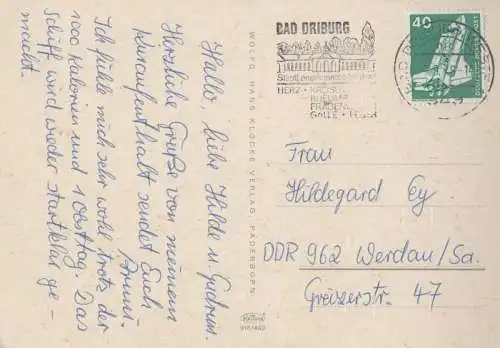 Hallo, liebe Hilde u. Gudrun.
Herzliche Grüße von meinem
Kuraufenthalt sendet Euch
Anni.
Ich fühle mich sehr wohl trotz der
1000 Kalorien und 1 Obsttag. Das
Schiff wird wieder startklar ge-
macht.
WOLFGANG KLOCKE VERLAG, PADERBORN
BAD DRIBURG
HERZ · KREISL
RHEUMA
GALLE ·
40
Frau
Hildegard Ey
DDR 962 Werdau/Sa.
Greizerstr. 47